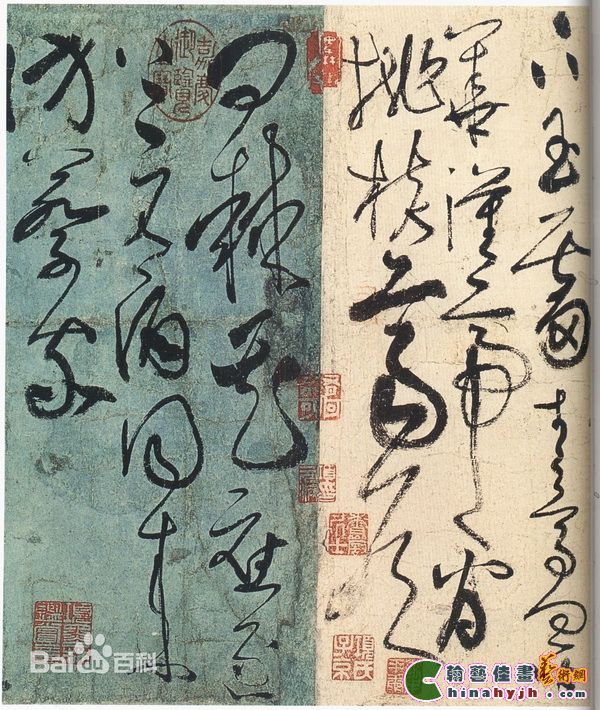 下玉霤青鳥向金
華漢帝看
桃核齊侯
問棘花應逐
上元酒同來
訪蔡家
嘉慶御覽之寶
Bai百科
翰藝佳畫藝術網
Chinahyjh.com